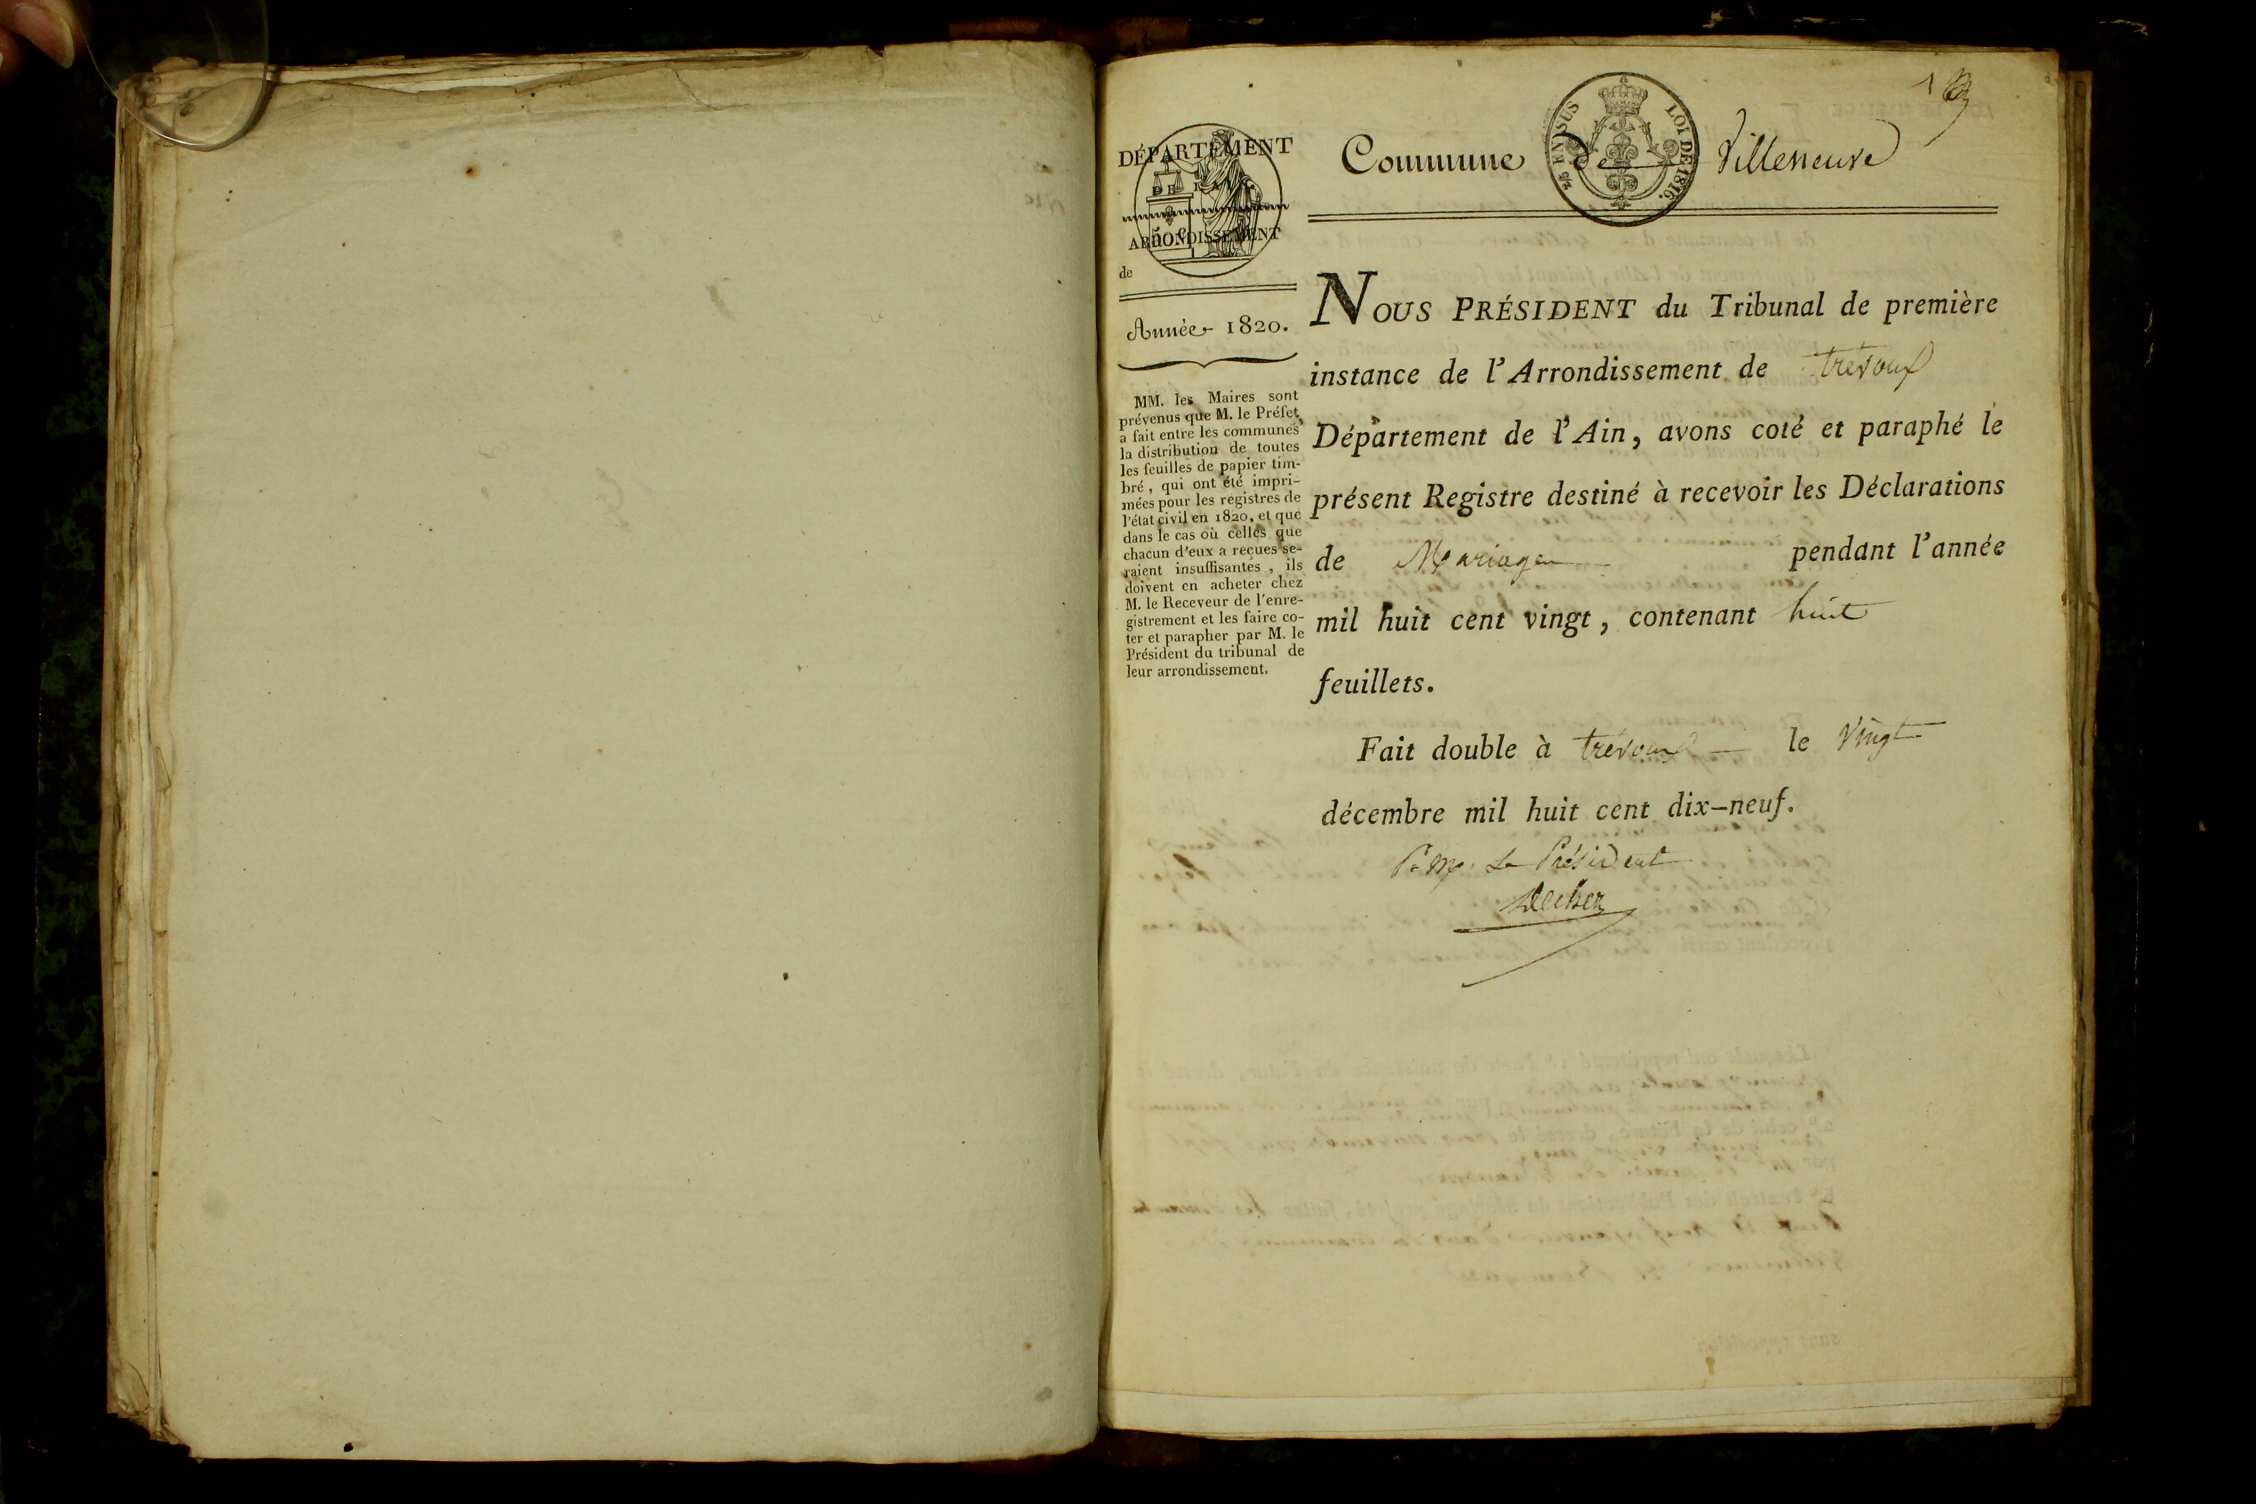 1
DÉPARTEMENT
DE L'AIN
ARRONDISSEMENT
de
Année 1820.
MM. les Maires sont
prévenus que M. le Préfet
a fait entre les communes
la distribution de toutes
les feuilles de papier tim-
bré, qui ont été impri-
mées pour les registres de
l'état civil en 1820, et que
dans le cas où celles que
chacun d'eux a reçues se-
raient insuffisantes, ils
doivent en acheter chez
M. le Receveur de l'enre-
gistrement et les faire co-
ter et parapher par M. le
Président du tribunal de
leur arrondissement.
Commune de Villeneuve
EN SUS LOI DE 1816.
NOUS PRÉSIDENT du Tribunal de première
instance de l'Arrondissement de trévoux
Département de l'Ain, avons coté et paraphé le
présent Registre destiné à recevoir les Déclarations
de Mariages pendant l'année
mil huit cent vingt, contenant huit
feuillets.
Fait double à trévoux le Vingt
décembre mil huit cent dix-neuf.
Le Président